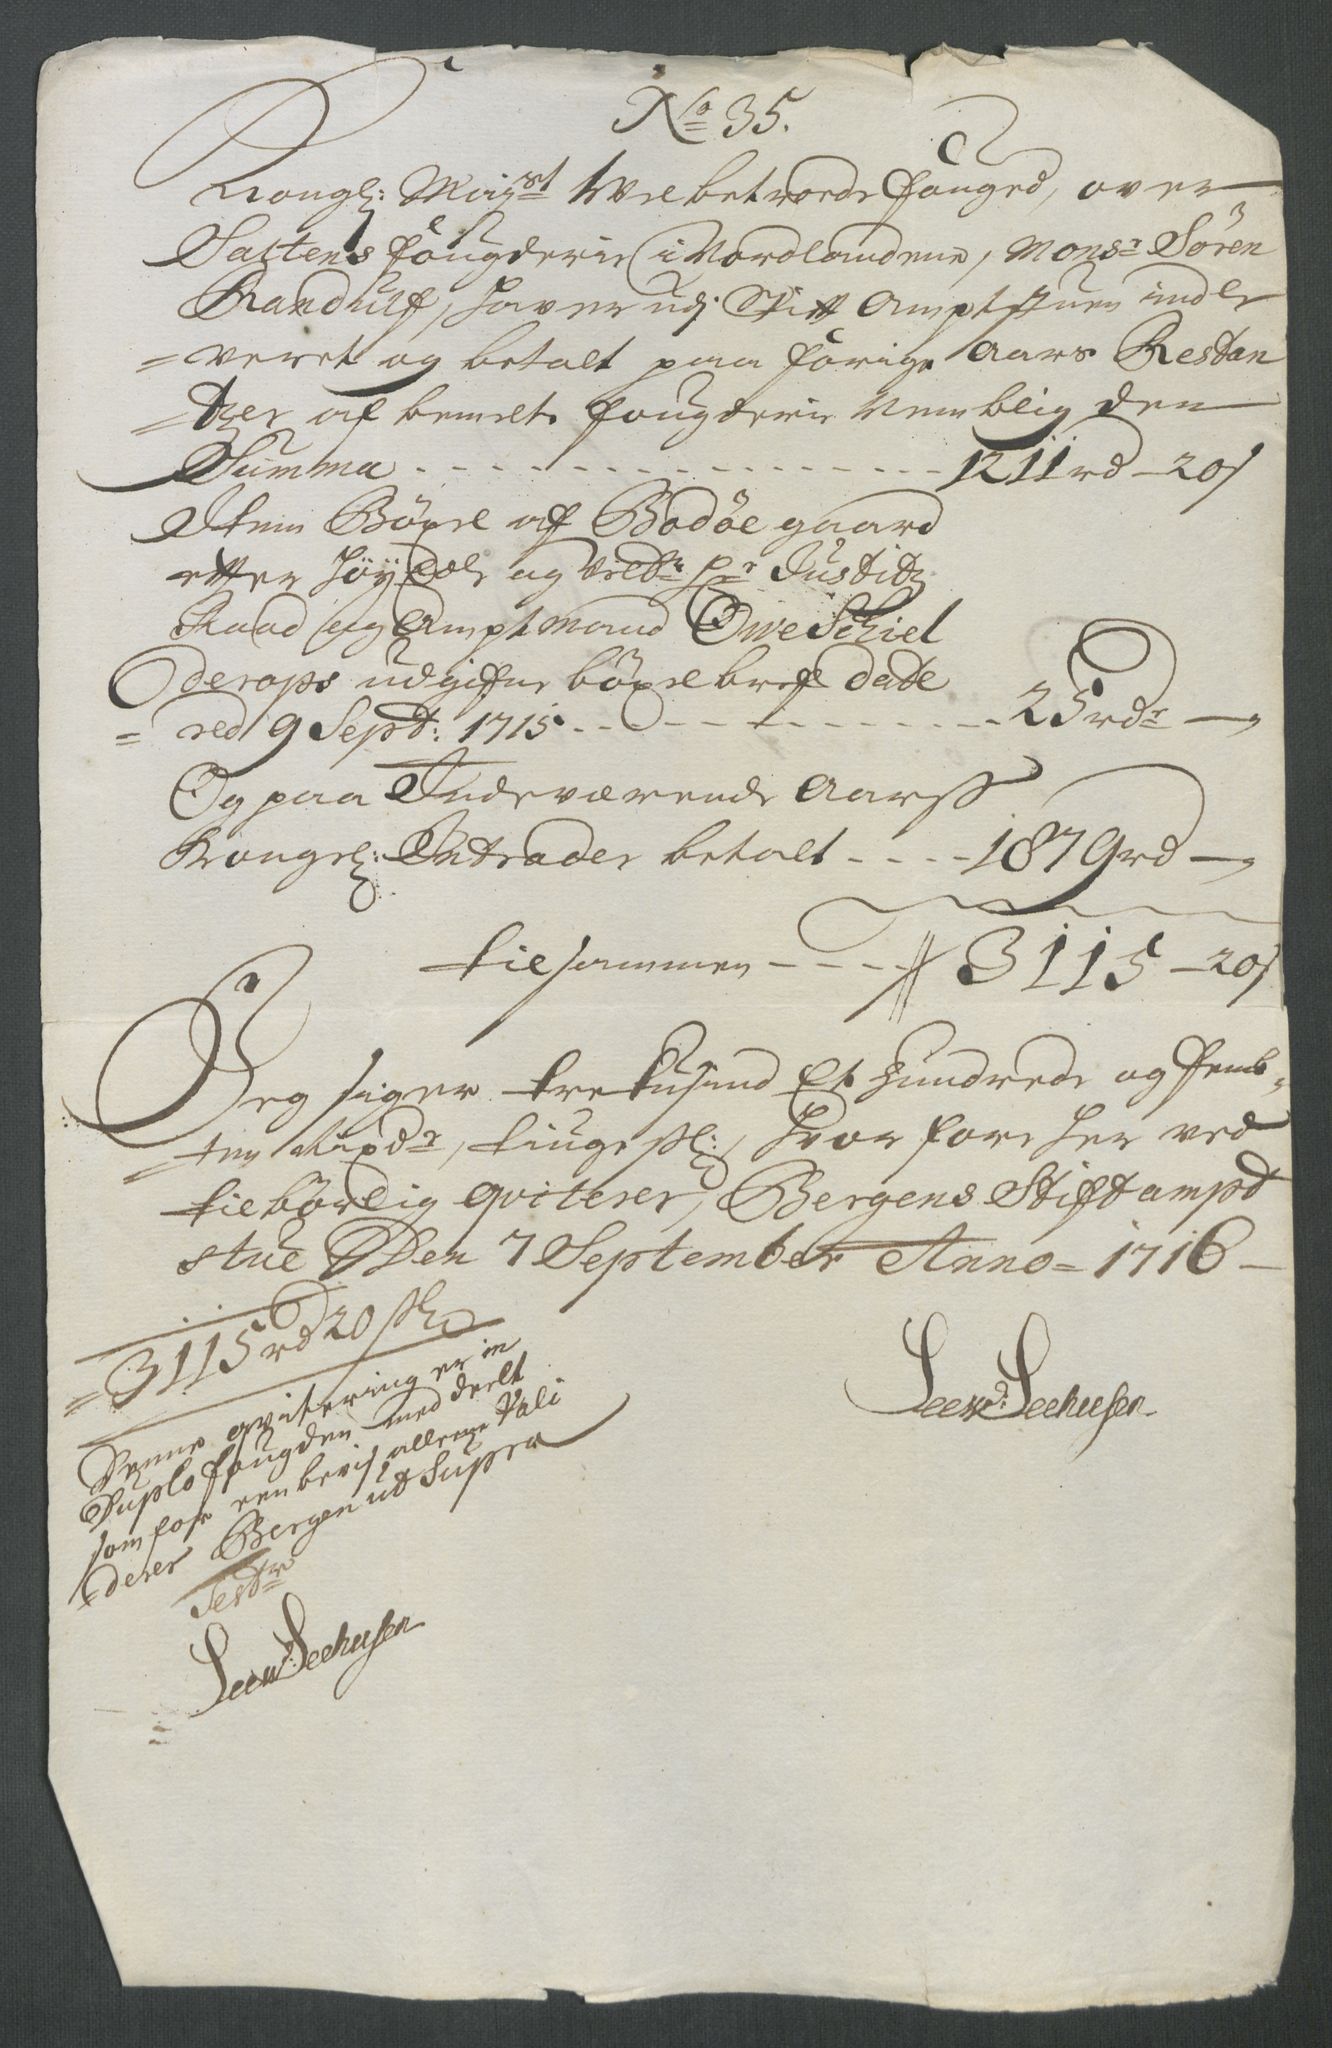 No 35.
Kongl: Mayst Welbetroede fouged, over
Saltens fougderie i Nordlandene, Monsr Sören
Randulf, haver udj Stift Amptstuen indle
=veret og betalt paa forige Aars Restan
=tzer af bemelte fougderie Nemblig den
Summa - - - - 1211 rd - 20 s
Item Böxel af Bodöe gaard
efter höyædle og velbr hr Justitz
Raad og Amptmand Owe Schiel
derops udgifne böxelbref date
=red 9 Sept: 1715 - - - - 25 rdr -
Og paa Indeværende Aarss
Kongel: Intrader betalt - - - - 1879 rd -
tilsammen - - - - 3115 - 20 s
Jeg siger tretusind Et hundrede og femb
=ten Rixdr, tiuge sk:, hvor fore her ved
tilbörlig qviterer, Bergens Stiftampt
stue Den 7 September Anno = 1716 -
=3115 rd 20 sk
Denne qvitering er in
Duplo fougden med deelt
som for een bevis allene Vali
=derer Bergen ut Supra
Testr
Leew: Seehusen
Leew: Seehusen